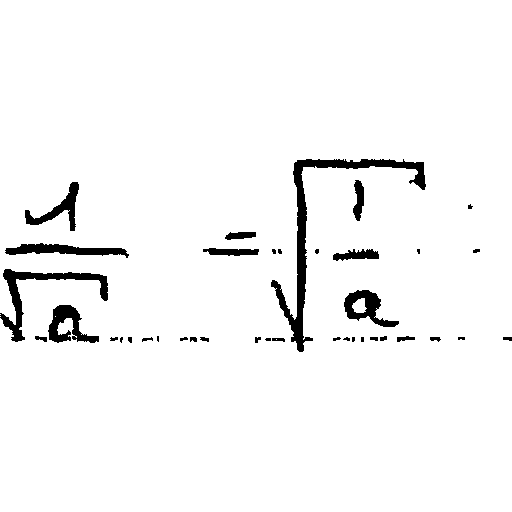 \frac{1}{\sqrt{a}} = \sqrt{\frac{1}{a}}